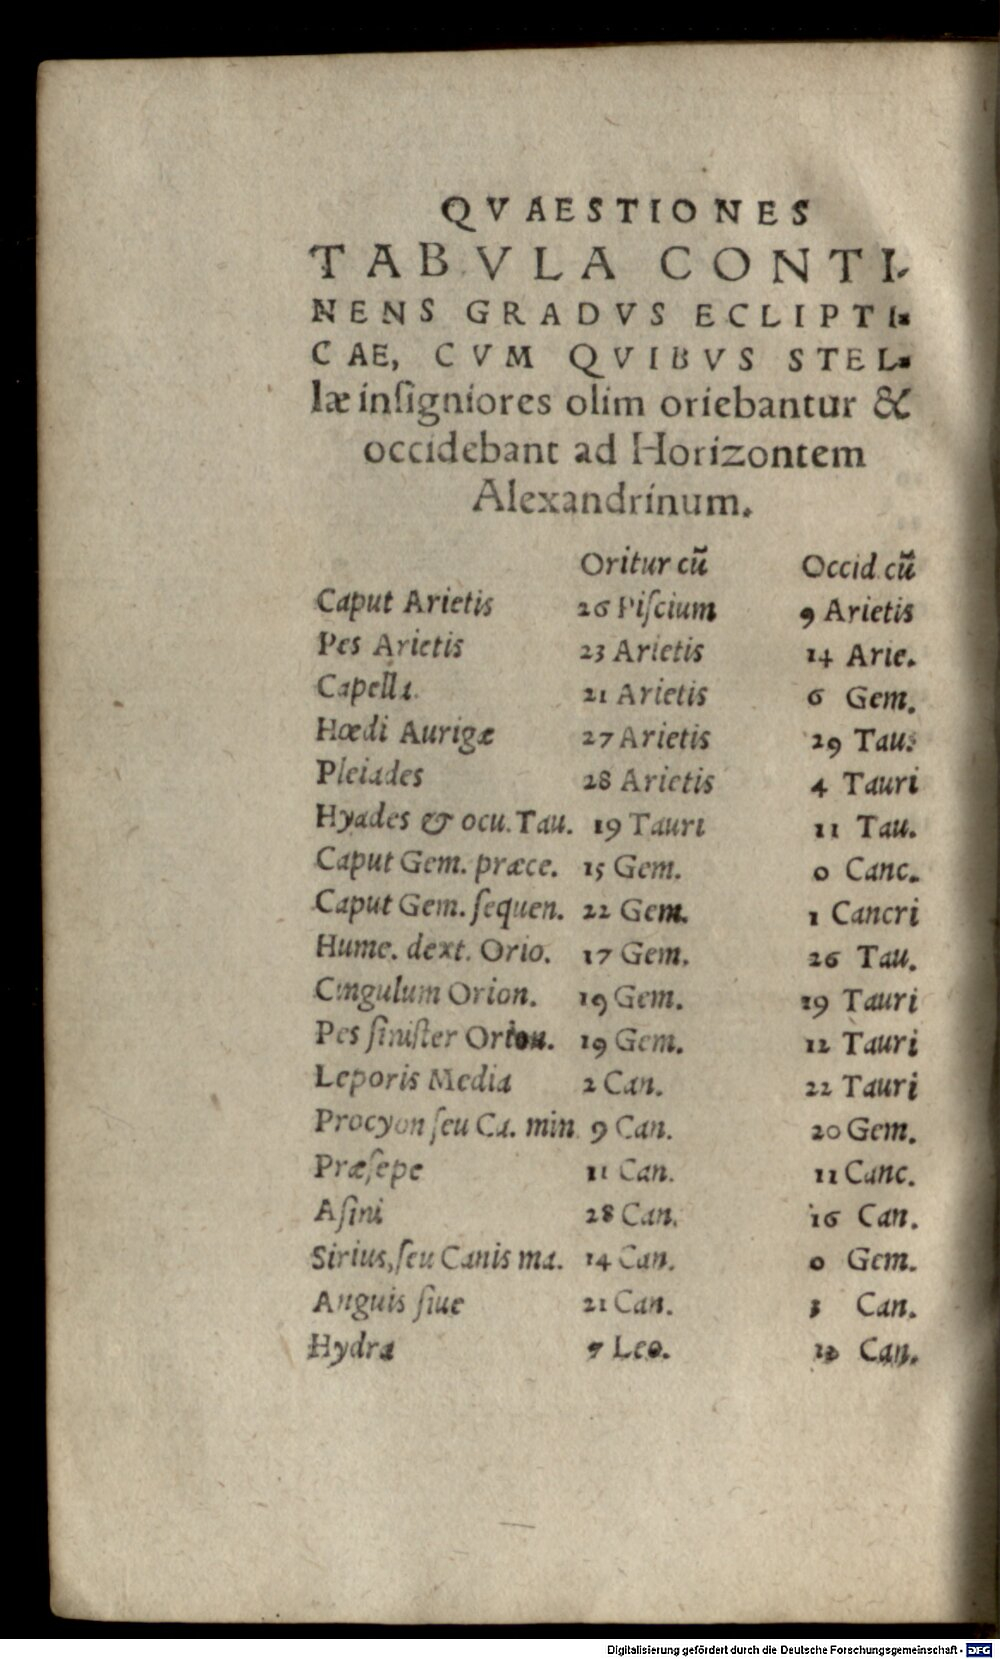 QVAESTIONES
TABVLA CONTI-
NENS GRADVS ECLIPTI-
CAE, CVM QVIBVS STEL-
læ inſigniores olim oriebantur &
occidebant ad Horizontem
Alexandrinum.
Oritur cũ Occid. cũ
Caput Arietis 26 Piſcium 9 Arietis
Pes Arietis 23 Arietis 14 Arie.
Capella. 21 Arietis 6 Gem.
Hœdi Aurigæ 27 Arietis 29 Tau.
Pleiades 28 Arietis 4 Tauri
Hyades & ocu. Tau. 19 Tauri 11 Tau.
Caput Gem. præce. 15 Gem. 0 Canc.
Caput Gem. ſequen. 22 Gem. 1 Cancri
Hume. dext. Orio. 17 Gem. 26 Tau.
Cingulum Orion. 19 Gem. 19 Tauri
Pes ſiniſter Orion. 19 Gem. 12 Tauri
Leporis Media 2 Can. 22 Tauri
Procyon ſeu Ca. min. 9 Can. 20 Gem.
Præſepe 11 Can. 11 Canc.
Aſini 28 Can. 16 Can.
Sirius, ſeu Canis ma. 14 Can. 0 Gem.
Anguis ſiue 21 Can. Can.
Hydra 7 Leo. Can.
Digitalisierung gefördert durch die Deutsche Forschungsgemeinschaft - DFG